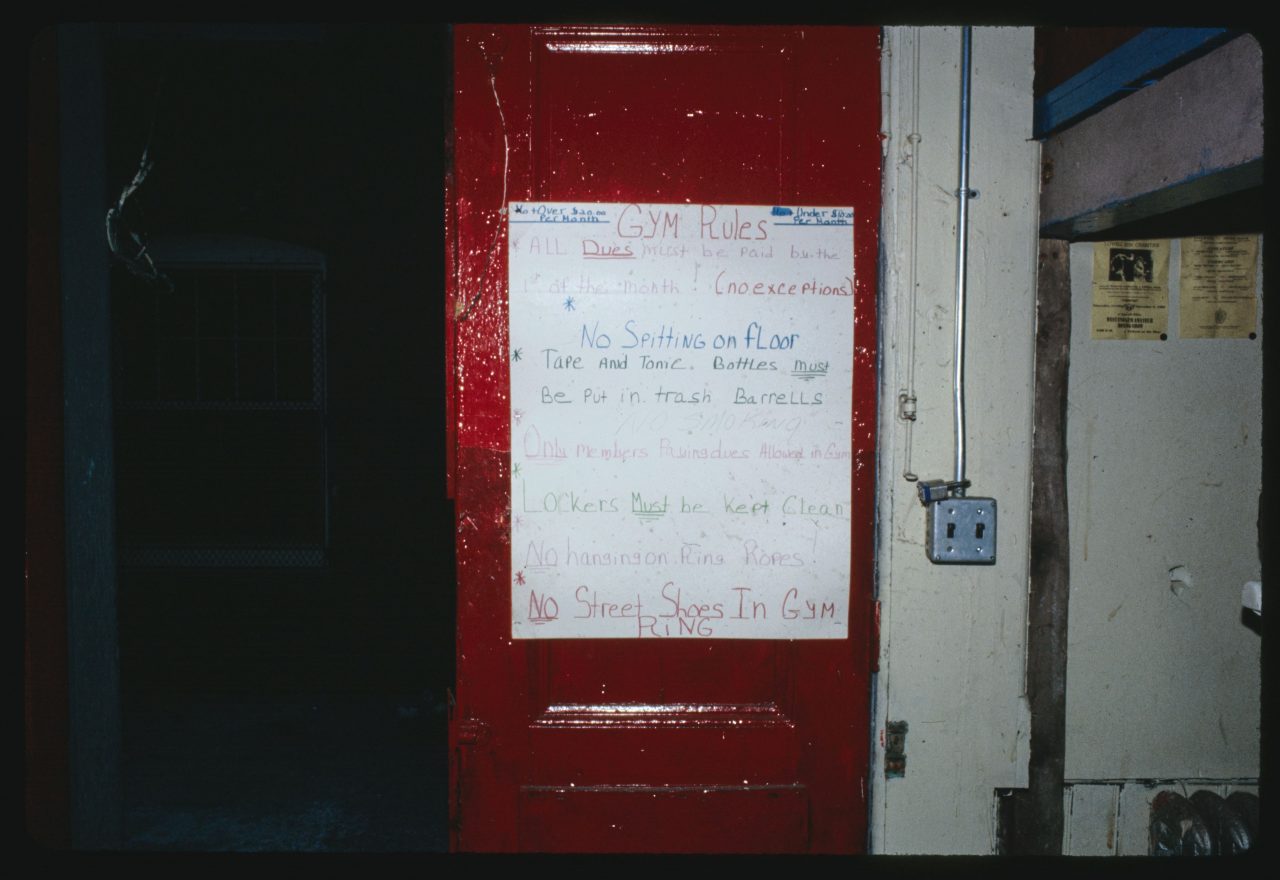 Over $20.00
Per Month
GYM Rules
Under $10.00
Per Month
* ALL Dues must be Paid by the
1st of the month! (no exceptions)
*
No Spitting on fLoor
* Tape and Tonic. Bottles must
Be Put in trash Barrells
NO SMOKING
* Only members Payingdues Allowed in Gym
* Lockers Must be kept Clean
* No hanging on Ring Ropes!
* NO Street Shoes In GYM
RiNG